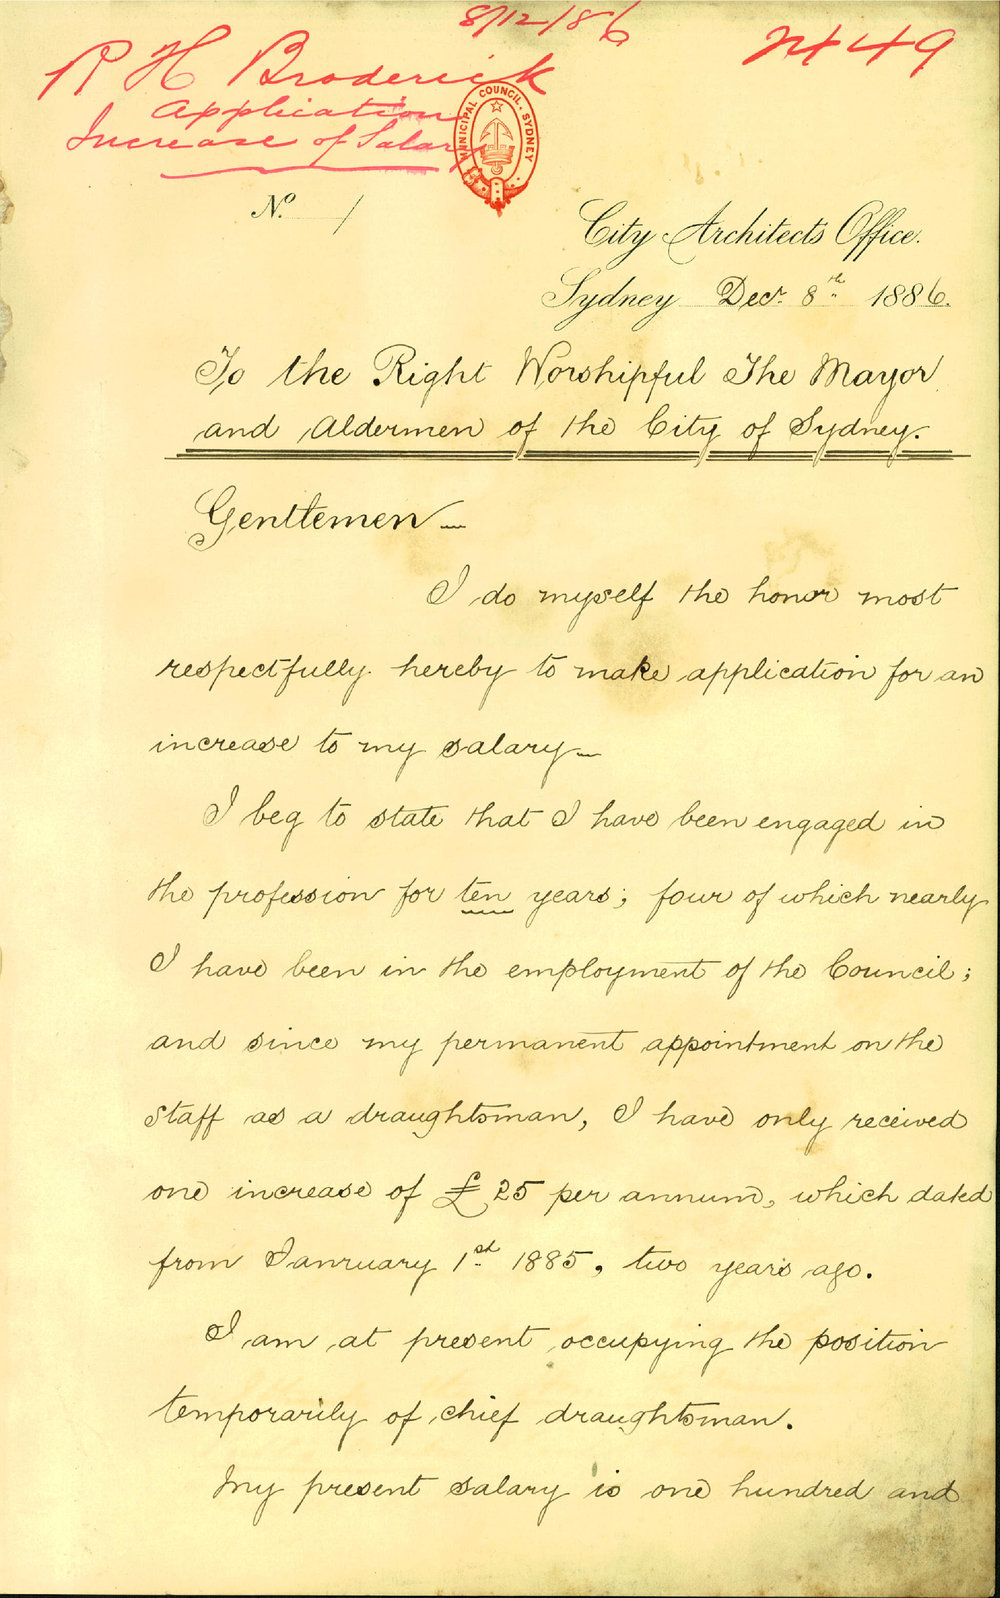 8/12/86
2449
R H Broderick
Application
Increase of Salary
MUNICIPAL COUNCIL. SYDNEY
No. 1
City Architects Office.
Sydney Decr. 8th. 1886.
To the Right Worshipful The Mayor
and Aldermen of the City of Sydney.
Gentlemen —
I do myself the honor most
respectfully hereby to make application for an
increase to my salary —
I beg to state that I have been engaged in
the profession for ten years; four of which nearly
I have been in the employment of the Council;
and since my permanent appointment on the
staff as a draughtsman, I have only received
one increase of £25 per annum, which dated
from January 1st. 1885, two years ago.
I am at present occupying the position
temporarily of chief draughtsman.
My present salary is one hundred and